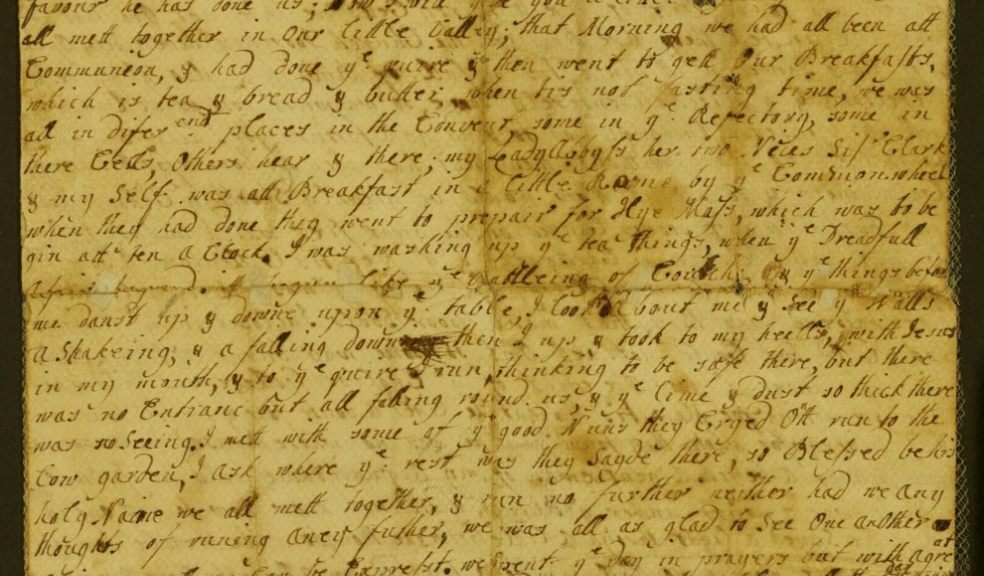 favour he has done us;
all mett together in our little Gallery; that Morning we had all been att
Communion, & had done yᵉ quire & then went to gett Our Breakfasts,
which is tea & bread & butter when tis not fasting time, we was
all in diferend places in the Convent, some in yᵉ Refectory, some in
there Cells, Others hear & there; my Lady her two Sisᵗ Clark
& my Self was att Breakfast in a little Rome by yᵉ Common
when they had done they went to prepair for Hye Mass, which was to be
gin attᵗ ten a Clock, I was washing up yᵉ tea things, when yᵉ Dreadfull
it began like yᵉ rattleing of Coaches & yᵉ things before
me danst up & downe upon yᵉ table, I look about me & see yᵉ Walls
a Shakeing, & a falling down then I up & took to my heells, with Jesus
in my mouth, & to yᵉ quire I run, thinking to be safe there, but there
was no Entranc but all faling round us, & yᵉ lime & dust so theck there
was no Seeing. I mett with some of yᵉ good Nuns they Cryed Ott run to the
Low garden, I ask where yᵉ rest was they Sayde there, so Blessed be his
holy Name we all mett together, & run no further neither had we any
thoughts of runing aney futher, we was all as glad to See One another
Can be Exprest. we spent yᵉ Day in prayers but with a gre at